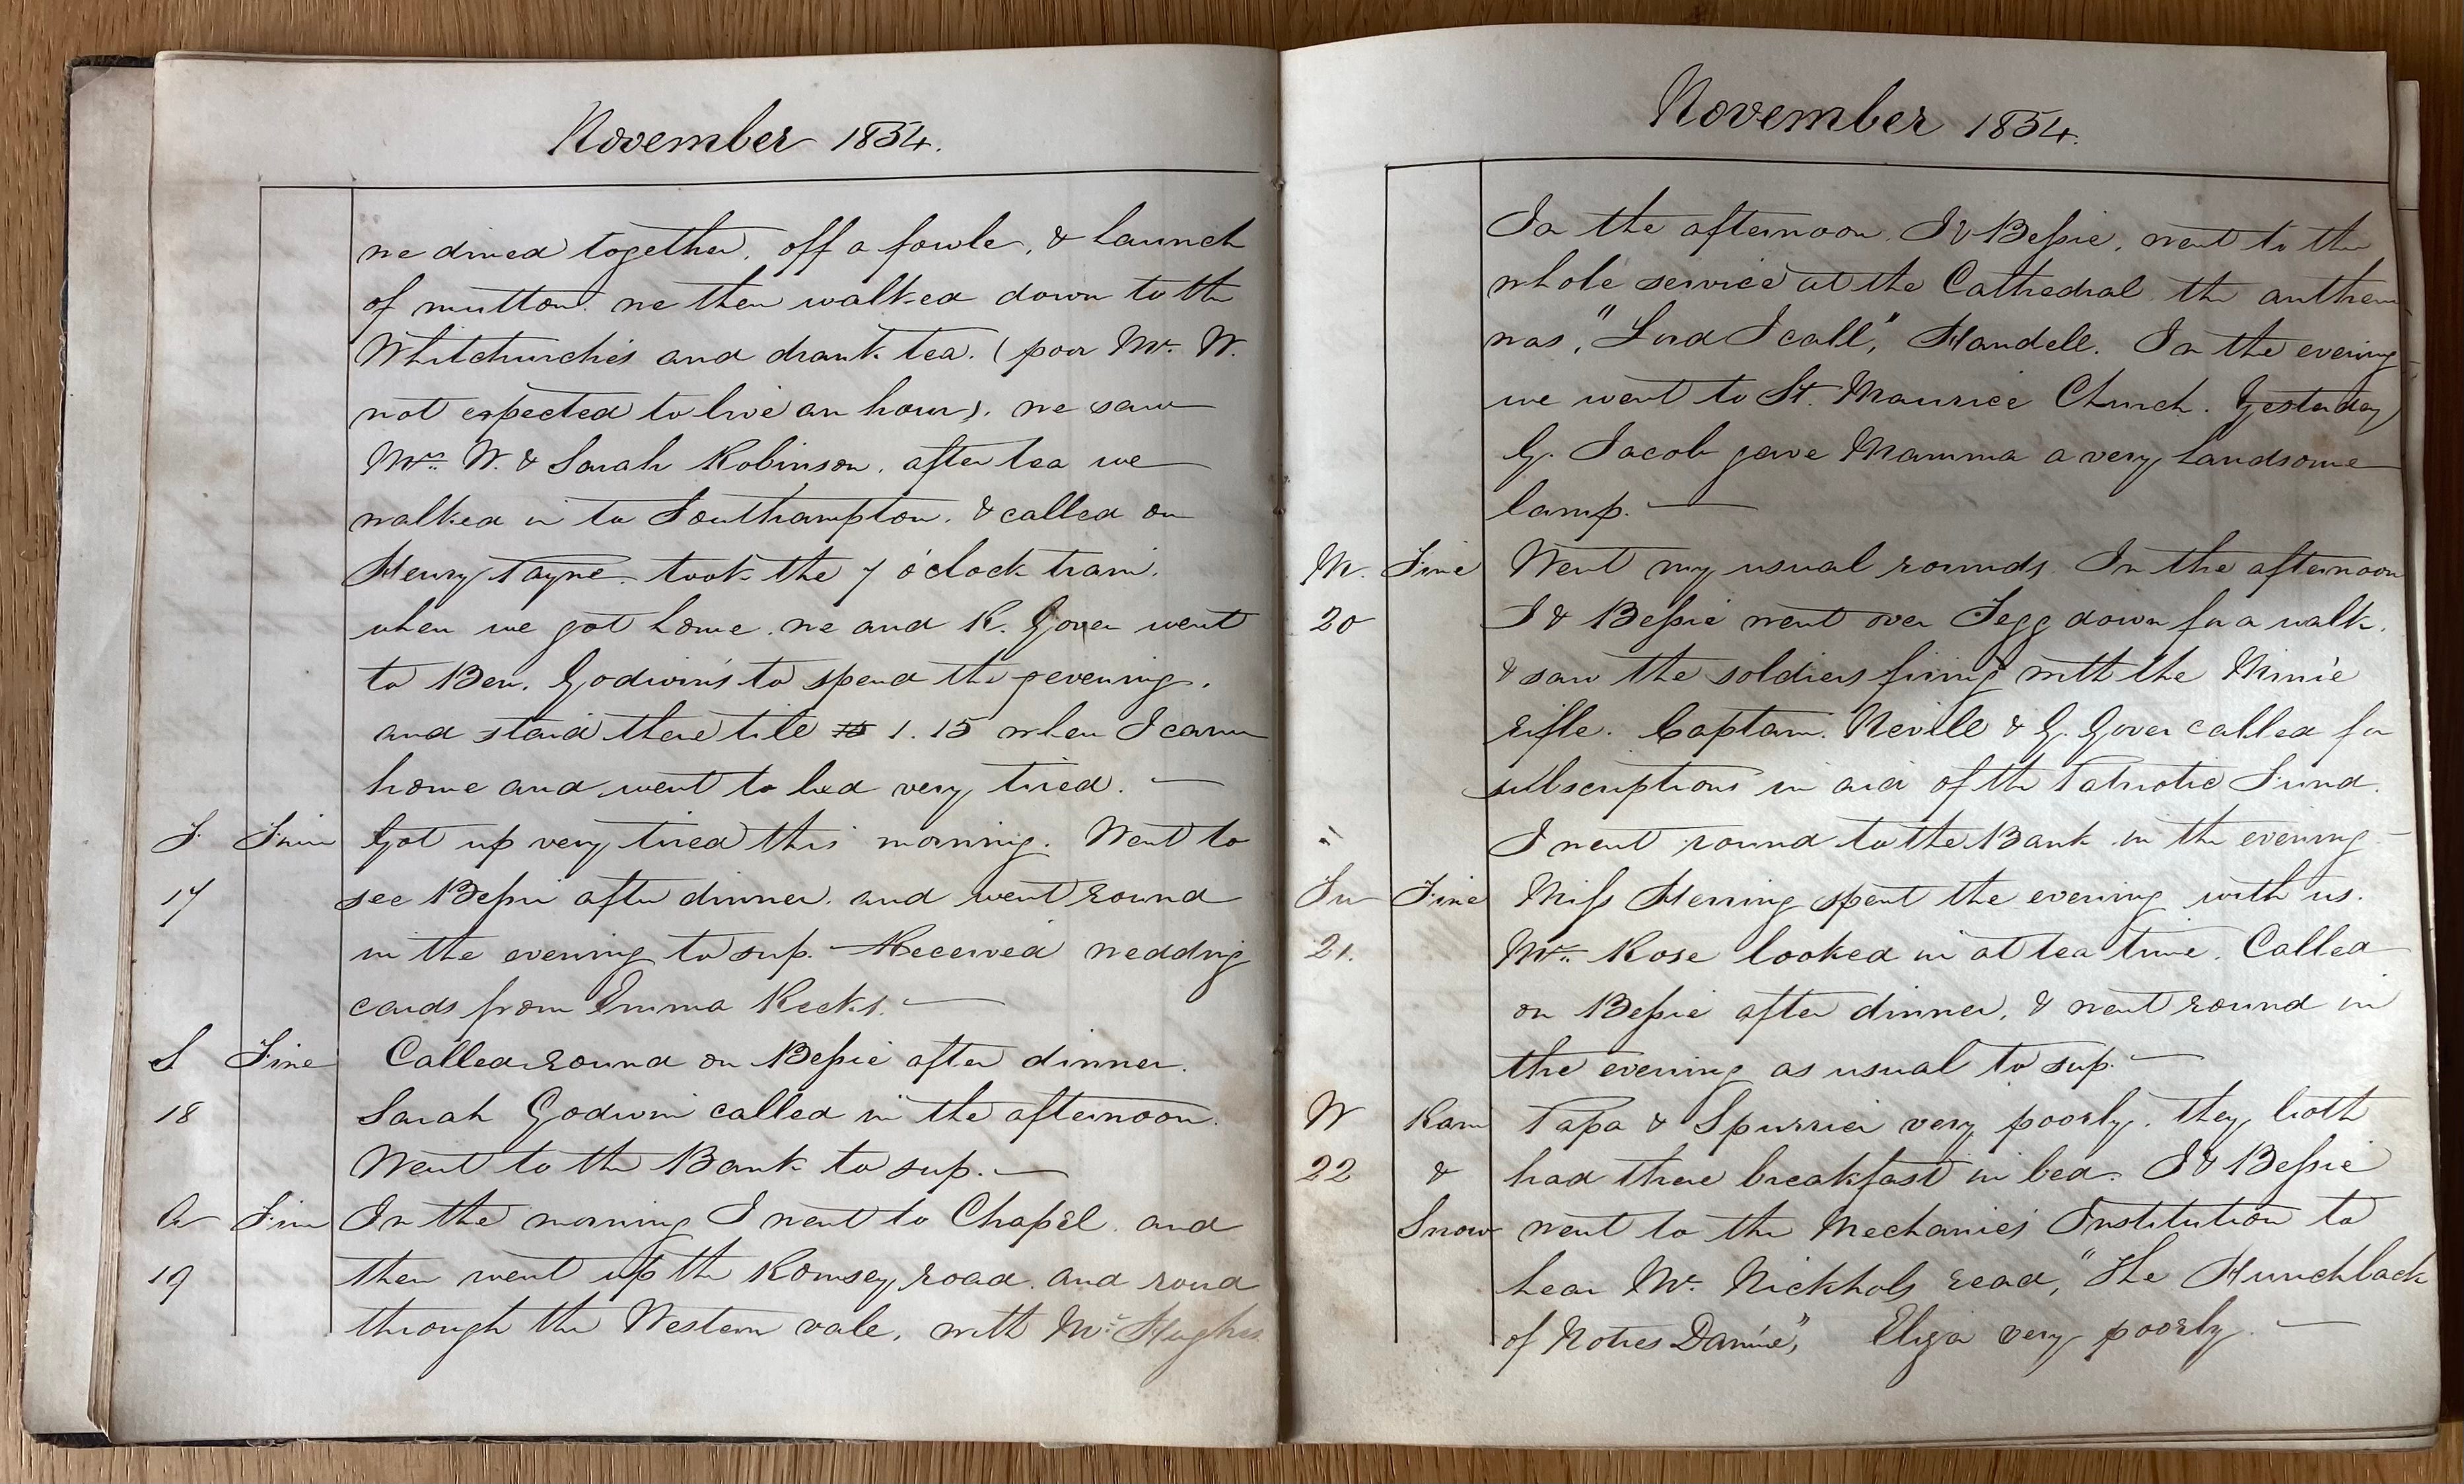 November 1854.
we dined together, off a fowle, & haunch
of mutton. we then walked down to the
Whitchurche's and drank tea. (poor Mr. W.
not expected to live an hour). we saw
Mrs. W. & Sarah Robinson. after tea we
walked in to Southampton. & called on
Henry Payne. took the 7 o'clock train.
when we got home. we and R. Gover went
to Ben. Godwin's to spend the evening.
and staid there till 1.15 when I came
home and went to bed very tired. —
F. Fine Got up very tired this morning. Went to
17 see Bessie after dinner. and went round
in the evening to sup. Received wedding
cards from Emma Keeks. —
S Fine Called round on Bessie after dinner.
18 Sarah Godwin called in the afternoon.
Went to the Bank to sup. —
Fine In the morning I went to Chapel. and
19 then went up the Romsey road. and round
through the Western vale, with Mr. Hughes
November 1854.
In the afternoon. I & Bessie, went to the
whole service at the Cathedral the anthem
was, "Lord I call," Handell. In the evening
we went to St. Maurice Church. Yesterday
G. Jacob gave Mamma a very handsome
lamp. —
M. Fine Went my usual rounds. In the afternoon
20 I & Bessie went over Tegg down for a walk.
& saw the soldiers firing with the Minié
rifle. Captain. Nevill & G. Gover called for
subscriptions in aid of the Patriotic Fund.
" I went round to the Bank in the evening —
Tu Fine Miss Herring spent the evening with us.
21. Mrs. Rose looked in at tea time. Called
on Bessie after dinner, & went round in
the evening as usual to sup. —
W Rain Papa & Spurrier very poorly. they both
22 & had there breakfast in bed. I & Bessie
Snow went to the Mechanics Institution to
hear Mr. Nickhols read, "The Hunchback
of Notres Damé," Eliza very poorly. —